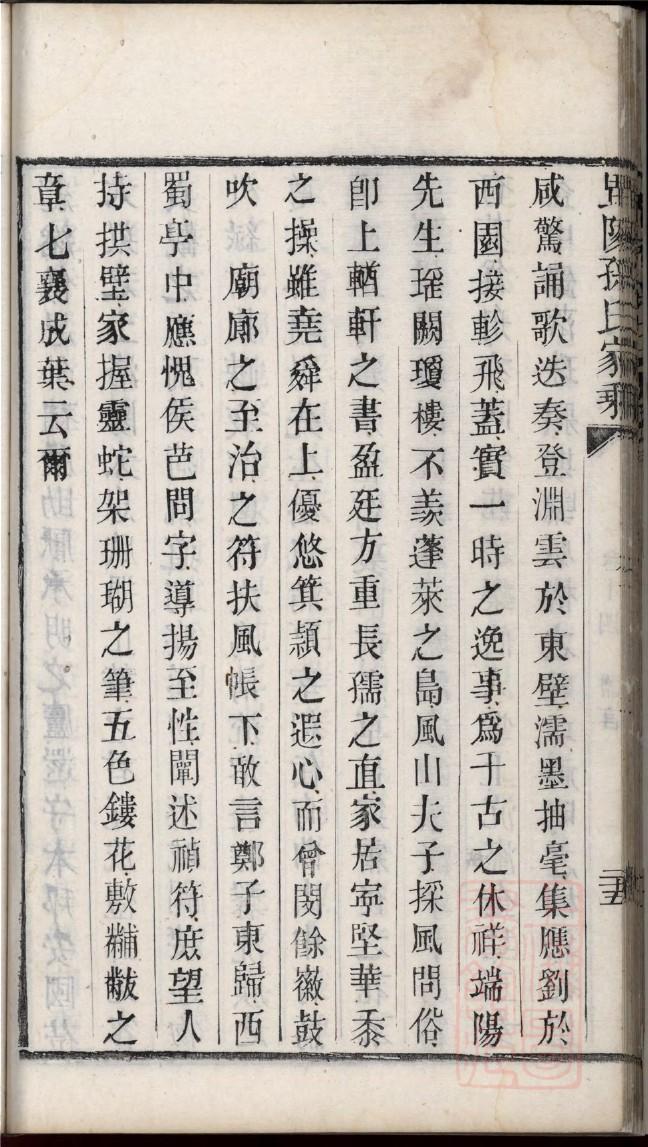 孫氏家乘
二五
咸驚誦歌迭奏登淵雲於東壁濡墨抽毫集應劉於
西園接軫飛蓋實一時之逸事為千古之休祥端陽
先生瑤闕瓊樓不羨蓬萊之島風山夫子採風問俗
卽上輶軒之書盈廷方重長孺之直家居寧堅華黍
之操雖堯舜在上優悠箕潁之遐心而曾閔餘徽鼓
吹 廟廊之至治之符扶風帳下敢言鄭子東歸西
蜀亭中應愧侯芭問字導揚至性闡述禎符庶望人
持拱璧家握靈蛇架珊瑚之筆五色鏤花敷黼黻之
章七襄成葉云爾